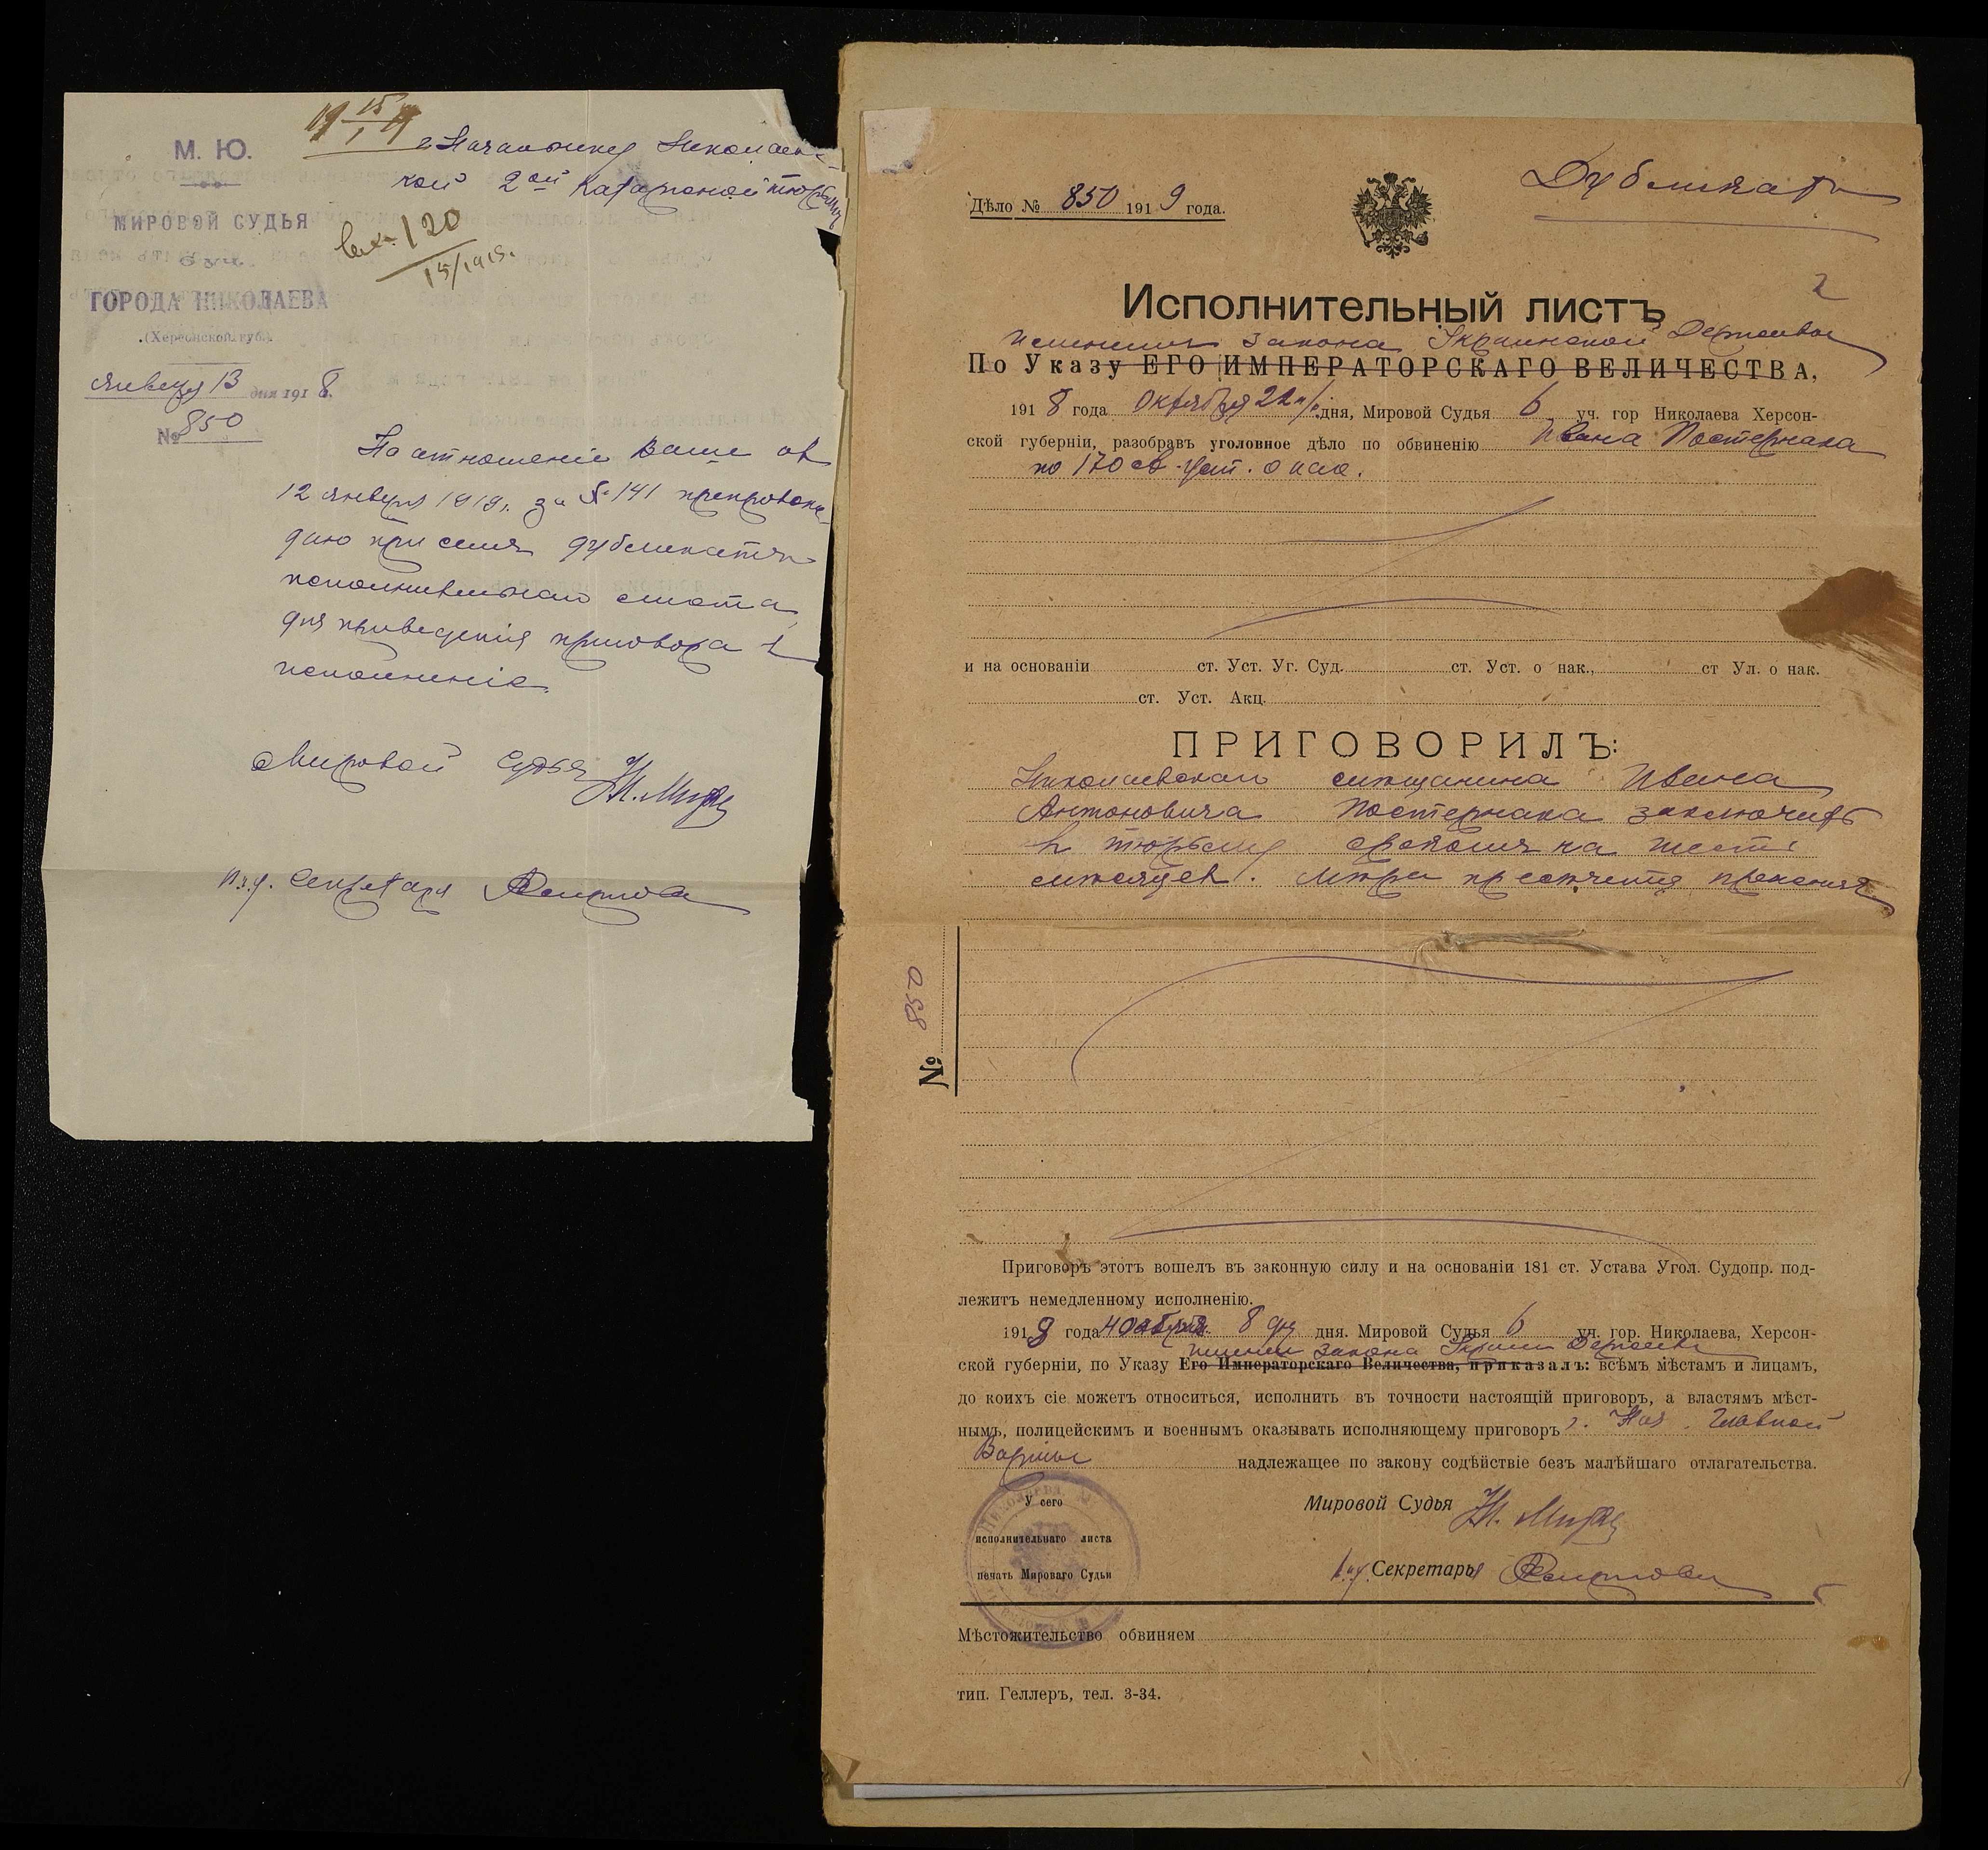 М. Ю.
МИРОВОЙ СУДЬЯ
6 уч.
ГОРОДА НИКОЛАЕВА
(Херсонской губ.)
Января 13 дня 1918 г.
№ 850
19 15/1 19
Начальнику Николаевс-
кой 2ой Каторжной тюрьмы
вх. 120
15/1 919.
На отношеніе Ваше отъ
12 января 1919 г. за № 141 препровож-
даю при семъ дубликатъ
исполнительнаго листа
для приведенія приговора въ
исполненіе.
Мировой Судья
И.д. Секретаря
Дѣло № 850 1919 года.
Дубликатъ
2
Исполнительный листъ
именемъ закона Украинской Державы
По Указу ЕГО ИМПЕРАТОРСКАГО ВЕЛИЧЕСТВА,
1918 года Октября 22 дня, Мировой Судья 6 уч. гор Николаева Херсон-
ской губерніи, разобравъ уголовное дѣло по обвиненію Ивана Постернака
по 170 ст. Уст. о нак.
и на основаніи ст. Уст. Уг. Суд. ст. Уст. о нак., ст Ул. о нак.
ст. Уст. Акц.
ПРИГОВОРИЛЪ:
Николаевскаго мѣщанина Ивана
Антоновича Постернака заключить
въ тюрьму срокомъ на шесть
мѣсяцевъ. Мѣра пресѣченія прежняя
№ 850
Приговоръ этотъ вошелъ въ законную силу и на основаніи 181 ст. Устава Угол. Судопр. под-
лежитъ немедленному исполненію.
1918 года ноября 8 дня. Мировой Судья 6 уч. гор. Николаева, Херсон-
именем закона Украин Державы
ской губерніи, по Указу Его Императорскаго Величества, приказалъ: всѣмъ мѣстамъ и лицамъ,
до коихъ сіе можетъ относиться, исполнить въ точности настоящій приговоръ, а властямъ мѣст-
нымъ, полицейскимъ и военнымъ оказывать исполняющему приговоръ г. Нач. Главной
Варты надлежащее по закону содѣйствіе безъ малѣйшаго отлагательства.
У сего
исполнительнаго листа
печать Мироваго Судьи
Мировой Судья
И.д. Секретаря
Мѣстожительство обвиняем
тип. Геллеръ, тел. 3-34.